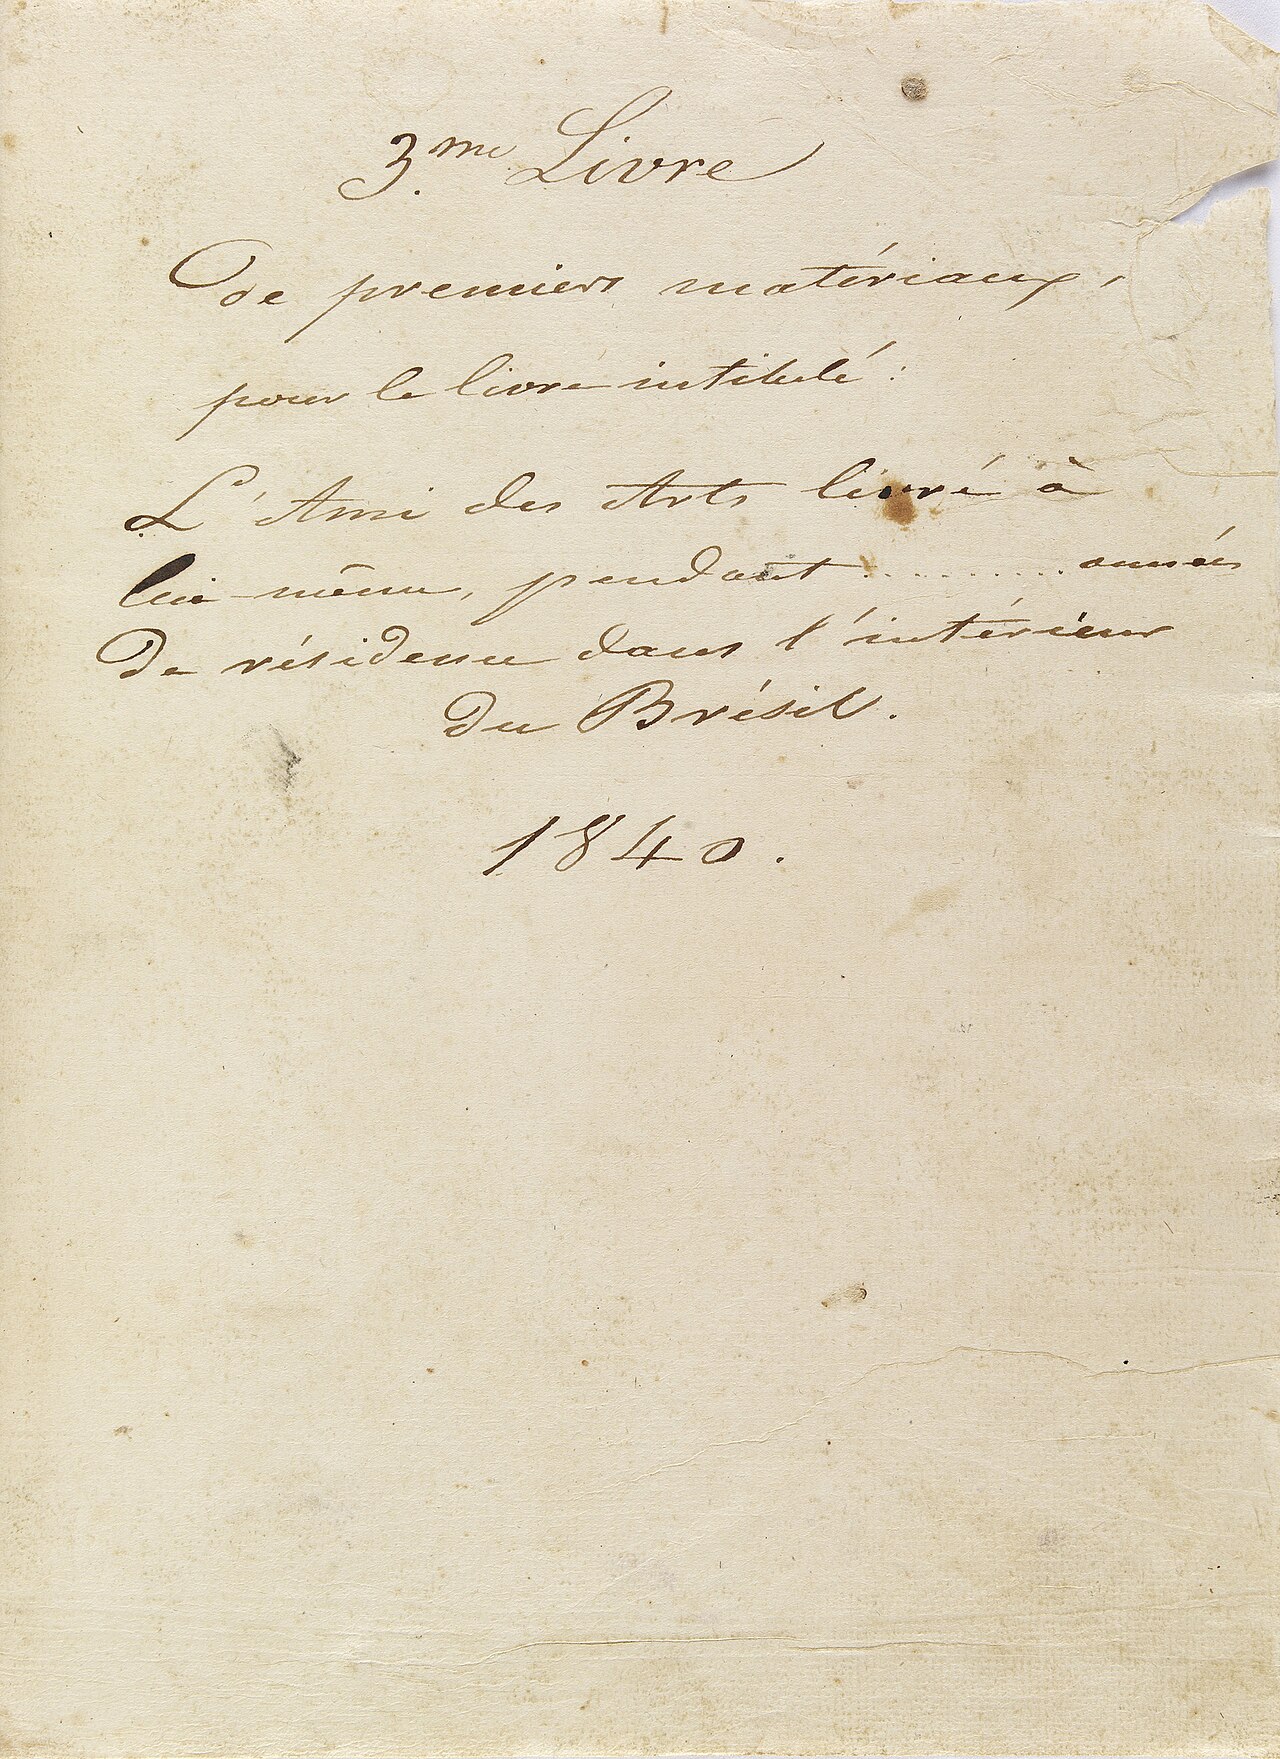 3.me Livre
De premiers matériaux,
pour le livre intitulé :
L'Ami des Arts livré à
lui même, pendant .......... années
De résidence dans l'intérieur
Du Brésil.
1840.